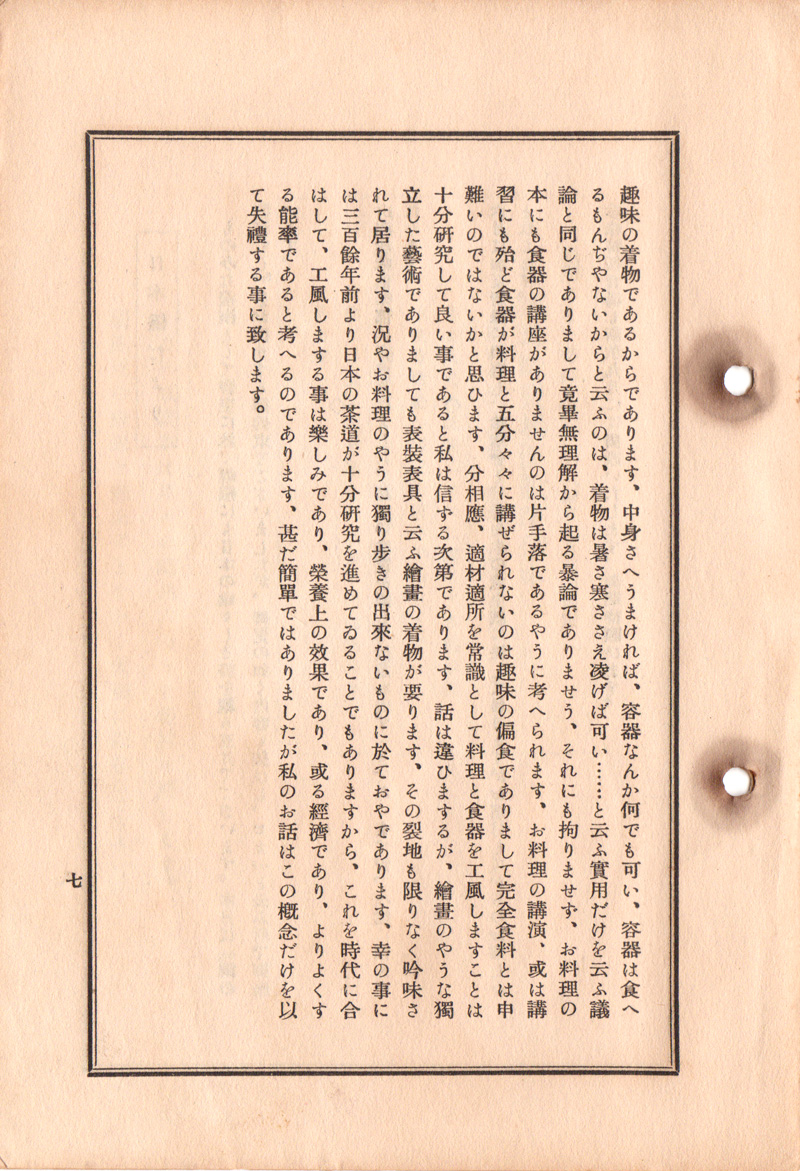 趣味の着物であるからであります、中身さへうまければ、容器なんか何でも可い、容器は食へ
るもんぢやないからと云ふのは、着物は暑さ寒ささえ凌げば可い……と云ふ實用だけを云ふ議
論と同じでありまして竟畢無理解から起る暴論でありませう、それにも拘りませず、お料理の
本にも食器の講座がありませんのは片手落であるやうに考へられます、お料理の講演、或は講
習にも殆ど食器が料理と五分々々に講ぜられないのは趣味の偏食でありまして完全食料とは申
難いのではないかと思ひます、分相應、適材適所を常識として料理と食器を工風しますことは
十分研究して良い事であると私は信ずる次第であります、話は違ひまするが、繪畫のやうな獨
立した藝術でありましても表裝表具と云ふ繪畫の着物が要ります、その裂地も限りなく吟味さ
れて居ります、況やお料理のやうに獨り步きの出來ないものに於ておやであります、幸の事に
は三百餘年前より日本の茶道が十分研究を進めてゐることでもありますから、これを時代に合
はして、工風しまする事は樂しみであり、榮養上の效果であり、或る經濟であり、よりよくす
る能率であると考へるのであります、甚だ簡單ではありましたが私のお話はこの槪念だけを以
て失禮する事に致します。
七